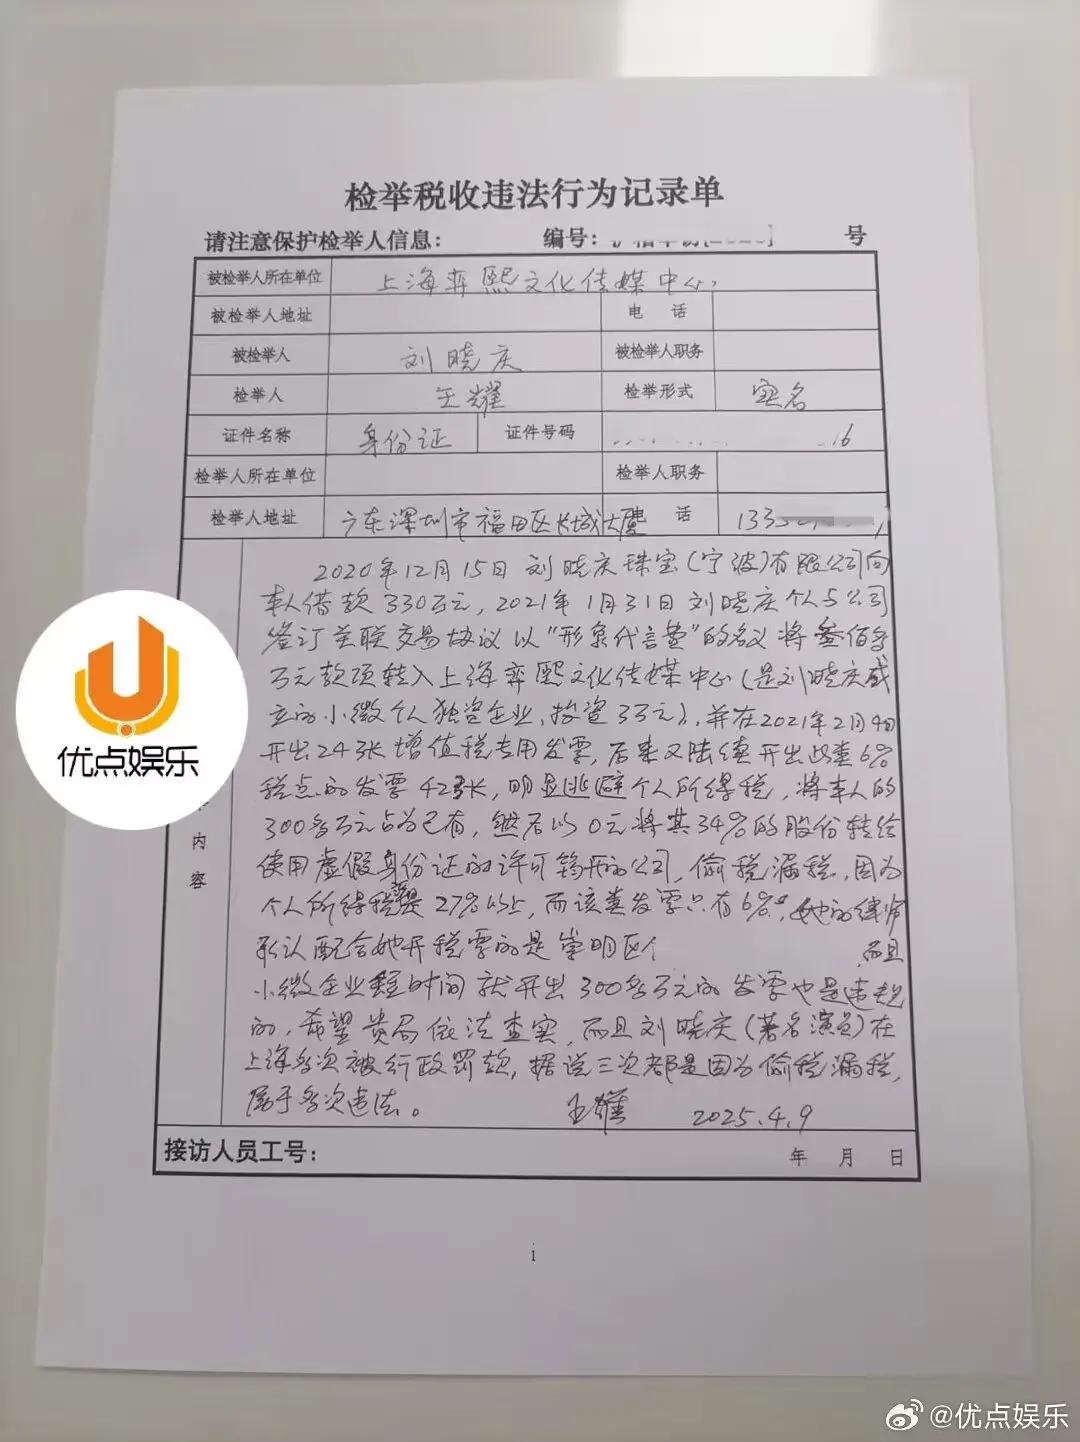 检举税收违法行为记录单
请注意保护检举人信息： 编号： 号
被检举人所在单位 上海弈熙文化传媒中心
被检举人地址 电 话
被检举人 刘晓庆 被检举人职务
检举人 王耀 检举形式 实名
证件名称 身份证 证件号码 16
检举人所在单位 检举人职务
检举人地址 广东深圳市福田区长城大厦 电 话 133
2020年12月15日刘晓庆珠宝(宁波)有限公司向
本人借款330万元，2021年1月31日刘晓庆个人与公司
签订关联交易协议以“形象代言费”的名义将叁佰多
万元款项转入上海弈熙文化传媒中心(是刘晓庆成
立的小微个人独资企业，投资3万元)，并在2021年2月4日
开出24张增值税专用发票，后来又陆续开出此类6%
税点的发票42张，明显逃避个人所得税，将本人的
300多万元占为己有，然后以0元将其34%的股份转给
使用虚假身份证的许可筠开的公司，偷税漏税，因为
个人所得税是27%以上，而该类发票只有6%，她的律师
承认配合她开税票的是崇明区个 而且
小微企业短时间就开出300多万元的发票也是违规
的，希望贵局依法查实，而且刘晓庆(著名演员)在
上海多次被行政罚款，据说三次都是因为偷税漏税，
属于多次违法。 王耀 2025.4.9
内
容
接访人员工号： 年 月 日
1
优点娱乐
@优点娱乐